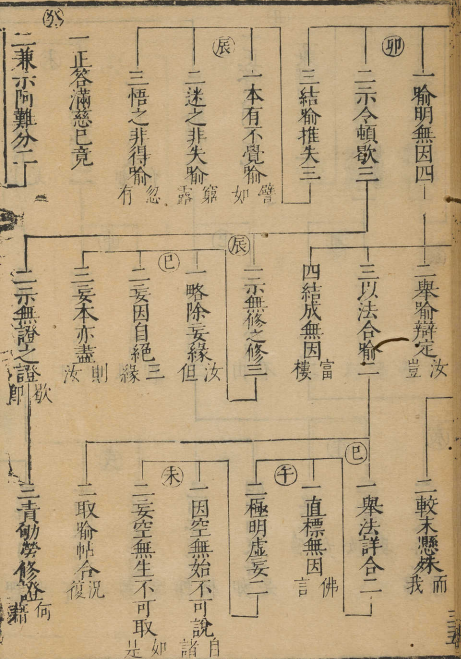 卯
一喻明無因四
二示令頓歇三
三結喻推失三
辰
一本有不覺喻
譬如
二迷之非失喻
窮露
三悟之非得喻
忽有
一正答滿慈已竟
二兼示阿難分二
二舉喻辯定
汝豈
三以法合喻二
四結成無因
富樓
辰
二示無修之修三
巳
一略除妄緣
汝但
二妄因自絕
三緣
三妄本亦盡
則汝
三示無證之證
歇即
二較末懸殊
而我
巳
一舉法詳合二
午
一直標無因
佛言
二極明虛妄二
未
一因空無始不可說
自諸
二妄空無生不可取
如是
二取喻帖合
況復
三責劬勞修證
何藉
三五